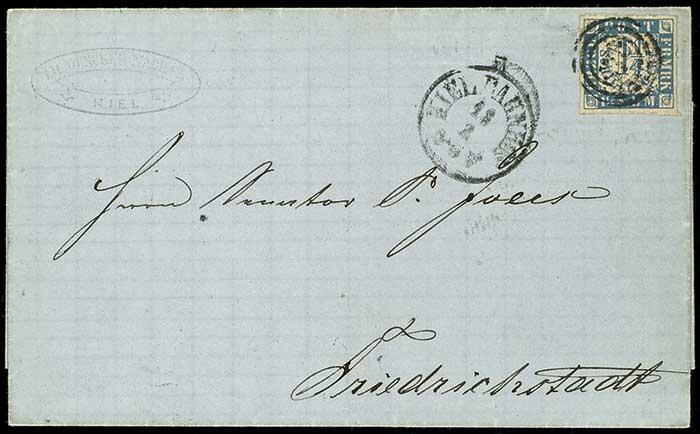 KIEL
KIEL BAHNHOF
19
2
POST
FRMRK
1¼
Herrn Senator P. Joers
Friedrichstadt